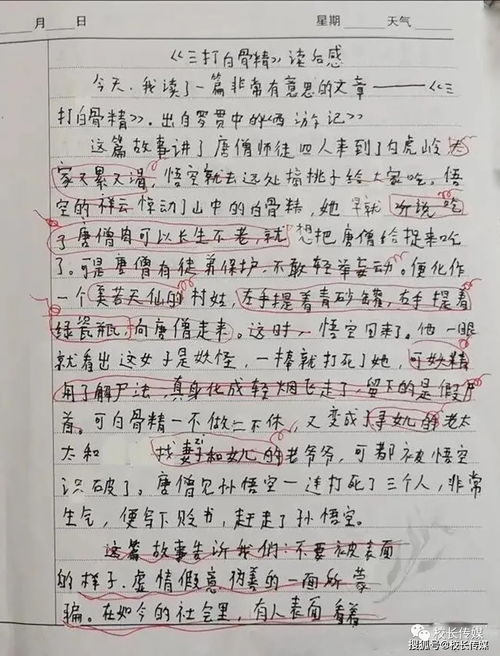 月 日 星期 天气
《三打白骨精》读后感
今天,我读了一篇非常有意思的文章——《三
打白骨精》。出自罗贯中的《西游记》
这篇故事讲了唐僧师徒四人来到了白虎岭,大
家又累又渴,悟空就去远处摘桃子给大家吃。悟
空的祥云惊动了山中的白骨精,她早就听说吃
了唐僧肉可以长生不老,就想把唐僧给捉来吃
了。可是唐僧有徒弟保护,不敢轻举妄动。便化作
一个美若天仙的村姑,左手提着青砂罐,右手提着
绿瓷瓶,向唐僧走来。这时,悟空回来了。他一眼
就看出这女子是妖怪,一棒就打死了她,可妖精
用了解尸法,真身化成轻烟飞走了,留下的是假尸
首。可白骨精一不做二不休,又变成了寻女儿的老太
太和 找妻子和女儿的老爷爷,可都被悟空
识破了。唐僧见孙悟空一连打死了三个人,非常
生气,便写下贬书,赶走了孙悟空。
这篇故事告诉我们:不要被表面
的样子,虚情假意伪善的一面所蒙
骗。在如今的社会里,有人表面看着
校长传媒
搜狐号@校长传媒